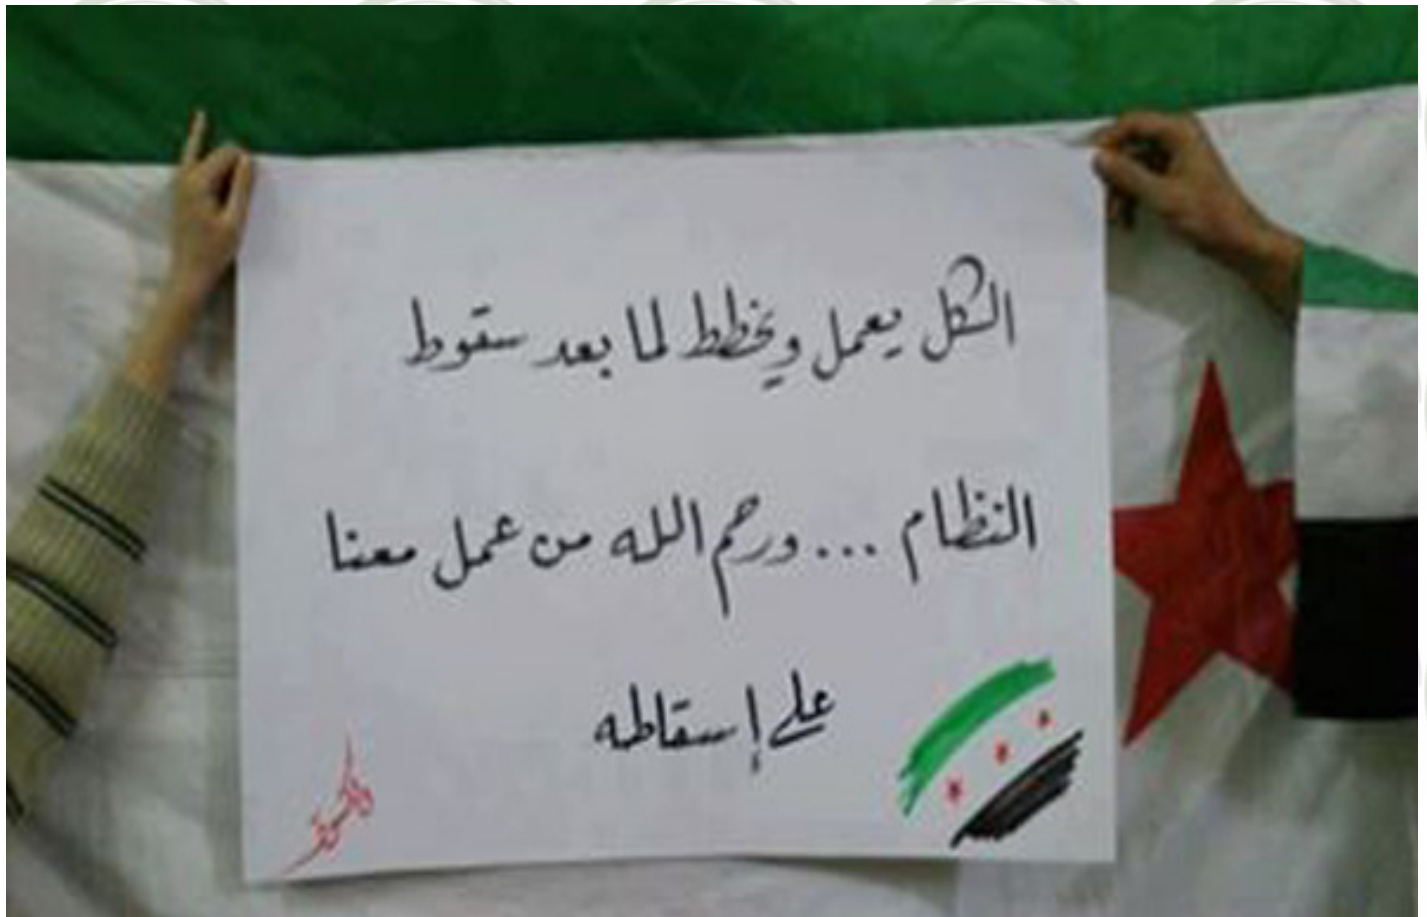 الكل يعمل ويخطط لما بعد سقوط
النظام ... ورحم الله من عمل معنا
على إسقاطه